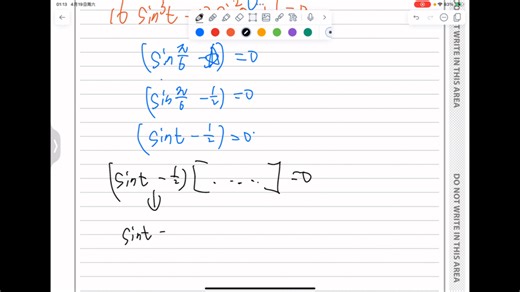 01:15 4月19日周六
83%
(sin π/6 - ) = 0
(sin π/6 - 1/2) = 0
(sin t - 1/2) = 0
(sin t - 1/2) [.....] = 0
↓
sin t -
DO NOT WRITE IN THIS AREA
DO NOT WRITE IN THIS AREA